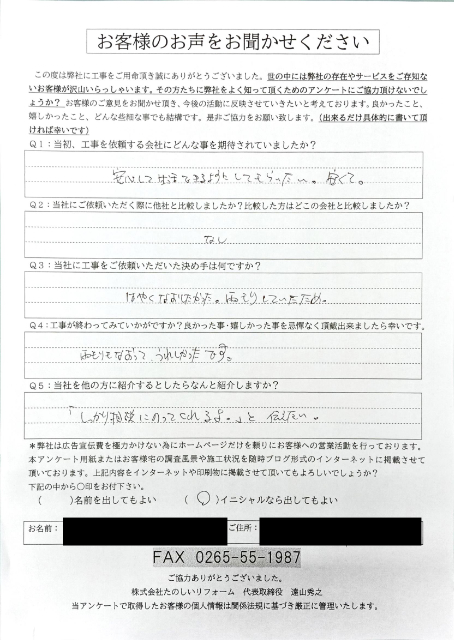 お客様のお声をお聞かせください
この度は弊社に工事をご用命頂き誠にありがとうございました。世の中には弊社の存在やサービスをご存知な
いお客様が沢山いらっしゃいます。その方たちに弊社をよく知って頂くためのアンケートにご協力頂けないでし
ょうか？ お客様のご意見をお聞かせ頂き、今後の活動に反映させていきたいと考えております。良かったこと、
嬉しかったこと、どんな些細な事でも結構です。是非ご協力をお願い致します。（出来るだけ具体的に書いて頂
ければ幸いです）
Q１：当初、工事を依頼する会社にどんな事を期待されていましたか？
安心して生活できるようにしてもらいたい。安くて。
Q２：当社にご依頼いただく際に他社と比較しましたか？比較した方はどこの会社と比較しましたか？
なし
Q３：当社に工事をご依頼いただいた決め手は何ですか？
はやくなおしたかった。雨もりしていたため。
Q４：工事が終わってみていかがですか？良かった事・嬉しかった事を忌憚なく頂戴出来ましたら幸いです。
雨もりもなおって うれしかったです。
Q５：当社を他の方に紹介するとしたらなんと紹介しますか？
「しっかり相談にのってくれるよ。」と 伝えたい。
＊弊社は広告宣伝費を極力かけない為にホームページだけを頼りにお客様への営業活動を行っております。
本アンケート用紙またはお客様宅の調査風景や施工状況を随時ブログ形式のインターネットに掲載させて
頂いております。上記内容をインターネットや印刷物に掲載させて頂いてもよろしいでしょうか？
下記の中から〇印をお付下さい。
（ ）名前を出してもよい （○）イニシャルなら出してもよい
お名前： ご住所：
FAX 0265-55-1987
ご協力ありがとうございました。
株式会社たのしいリフォーム 代表取締役 遠山秀之
当アンケートで取得したお客様の個人情報は関係法規に基づき厳正に管理いたします。